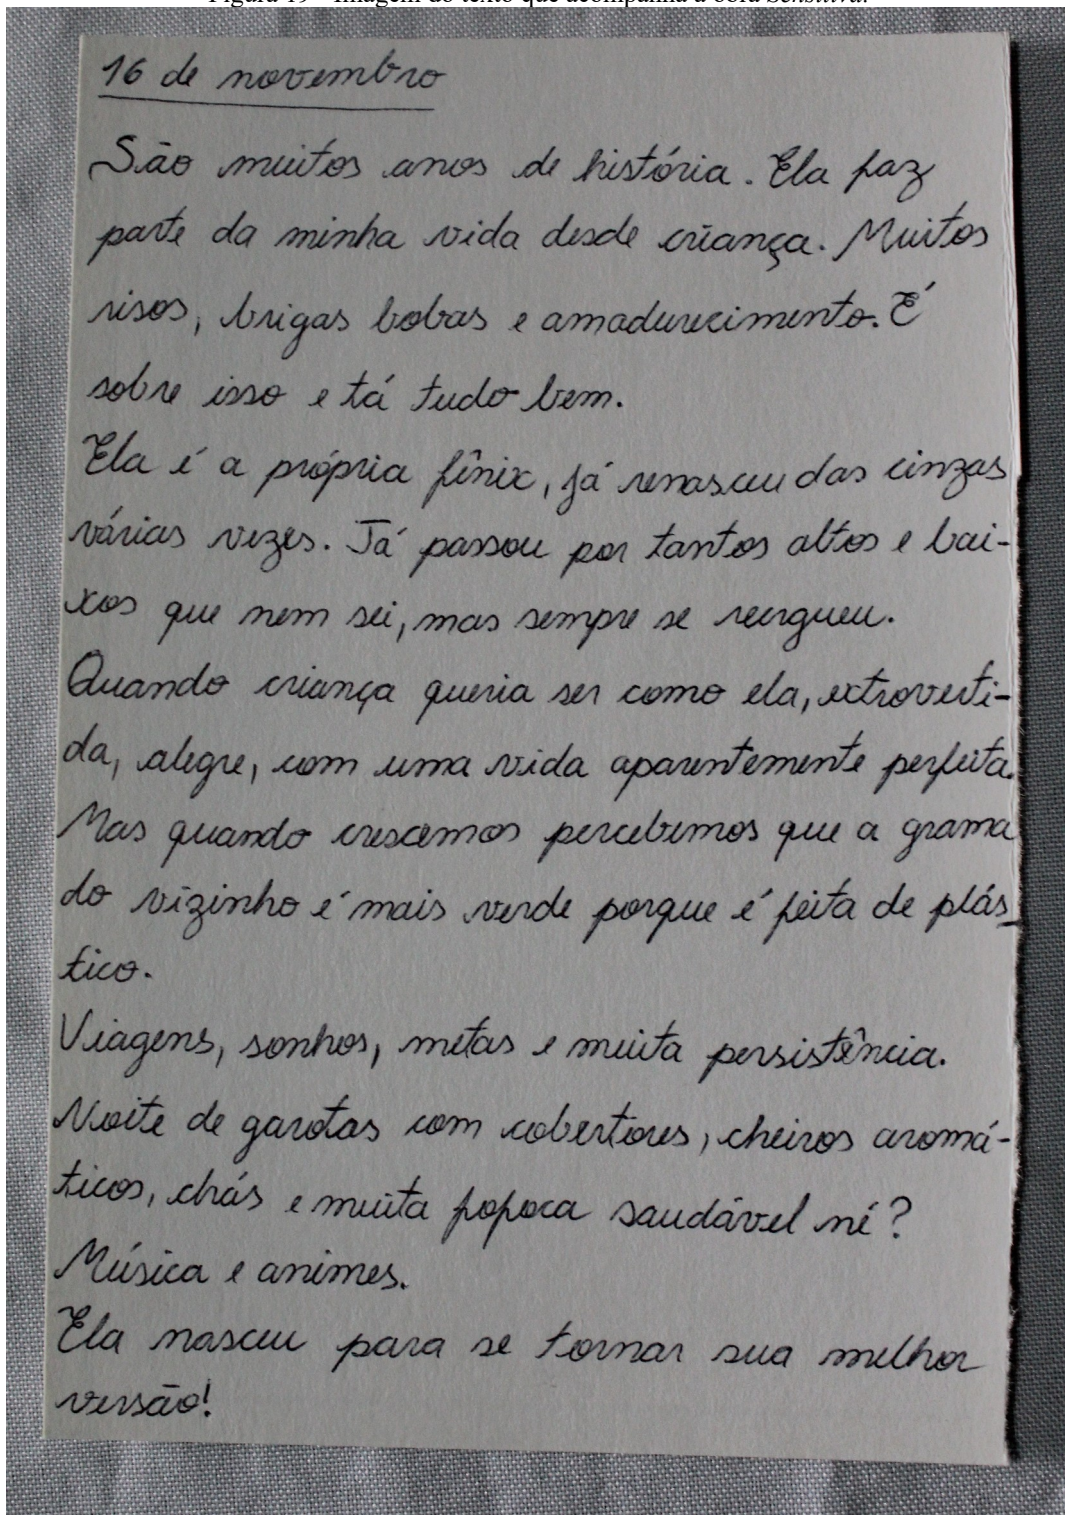 Figura 19 - Imagem do texto que acompanha a obra Sensitiva.
16 de novembro
São muitos anos de história. Ela faz
parte da minha vida desde criança. Muitos
risos, brigas bobas e amadurecimento. É
sobre isso e tá tudo bem.
Ela é a própria fênix, já renasceu das cinzas
várias vezes. Já passou por tantos altos e bai-
xos que nem sei, mas sempre se reergueu.
Quando criança queria ser como ela, extroverti-
da, alegre, com uma vida aparentemente perfeita.
Mas quando crescemos percebemos que a grama
do vizinho é mais verde porque é feita de plás_
tico.
Viagens, sonhos, metas e muita persistência.
Noite de garotas com cobertores, cheiros aromá-
ticos, chás e muita popoca saudável né?
Música e animes.
Ela nasceu para se tornar sua melhor
versão!